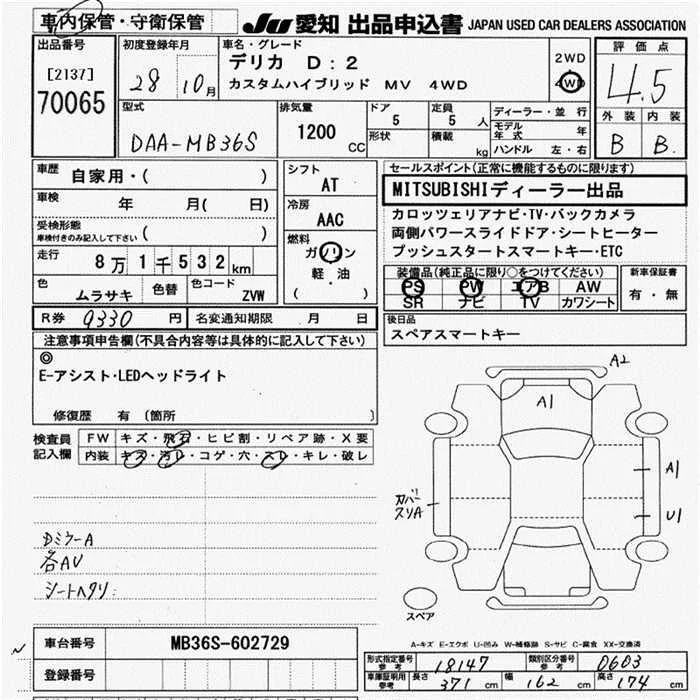 車内保管・守衛保管 JU 愛知 出品申込書 JAPAN USED CAR DEALERS ASSOCIATION
出品番号 初度登録年月 車名・グレード 評価点
[2137] 28 10月 デリカ D:2 2WD 4.5
70065 カスタムハイブリッド MV 4WD 4WD
型式 排気量 ドア 定員 ディーラー・並行 外装 内装
DAA-MB36S 1200 CC 5 5人 モデル年式 年 B B.
形状 積載 kg ハンドル 左・右
車歴 自家用・( ) シフト AT セールスポイント(正常に機能するものに限ります)
車検 年 月( 日) 冷房 AAC MITSUBISHIディーラー出品
受検形態 車検付きのみ記入して下さい ( ) カロッツェリアナビ・TV・バックカメラ
燃料 ガソリン 両側パワースライドドア・シートヒーター
走行 8万1千532km 軽・油 プッシュスタートスマートキー・ETC
( ) 装備品(純正品に限り○をつけてください) 新車保証書
色 ムラサキ 色替 色コード ZVW PS PW エアB AW 有・無
SR ナビ TV カワシート
R券 9330 円 名変通知期限 月 日 後日品
スペアスマートキー
注意事項申告欄(不具合内容等は具体的に記入して下さい)
◎
E-アシスト・LEDヘッドライト
修復歴 有 〔箇所 〕
検査員記入欄 FW キズ・飛石・ヒビ割・リペア跡・X要
内装 キズ・汚レ・コゲ・穴・スレ・キレ・破レ
A2
A1
A1
カバースリA
U1
Dミラー A
各AU
シートヘタリ:
スペア
A-キズ E-エクボ U-凹み W-補修跡 S-サビ C-腐食 XX-交換済
車台番号 MB36S-602729
登録番号
形式指定番号 参考 18147 類別区分番号 参考 0603
車庫証明用 参考 長さ 371 cm 幅 162 cm 高さ 174 cm